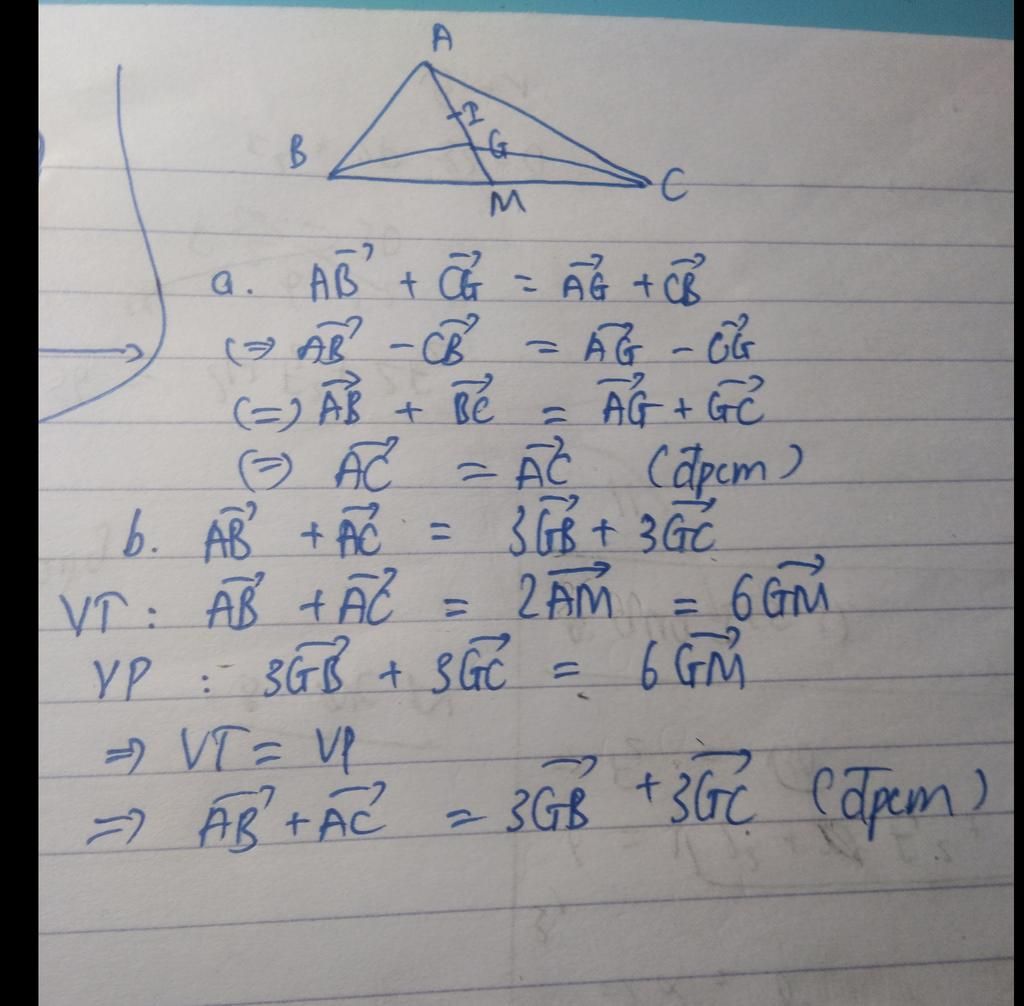 A
I
B
G
C
M
a. AB⃗ + CG⃗ = AG⃗ + CB⃗
(=> AB⃗ - CB⃗ = AG⃗ - CG⃗
(=) AB⃗ + BC⃗ = AG⃗ + GC⃗
(=) AC⃗ = AC⃗ (đpcm)
b. AB⃗ + AC⃗ = 3GB⃗ + 3GC⃗
VT : AB⃗ + AC⃗ = 2AM⃗ = 6GM⃗
VP : 3GB⃗ + 3GC⃗ = 6GM⃗
=> VT = VP
=> AB⃗ + AC⃗ = 3GB⃗ + 3GC⃗ (đpcm)